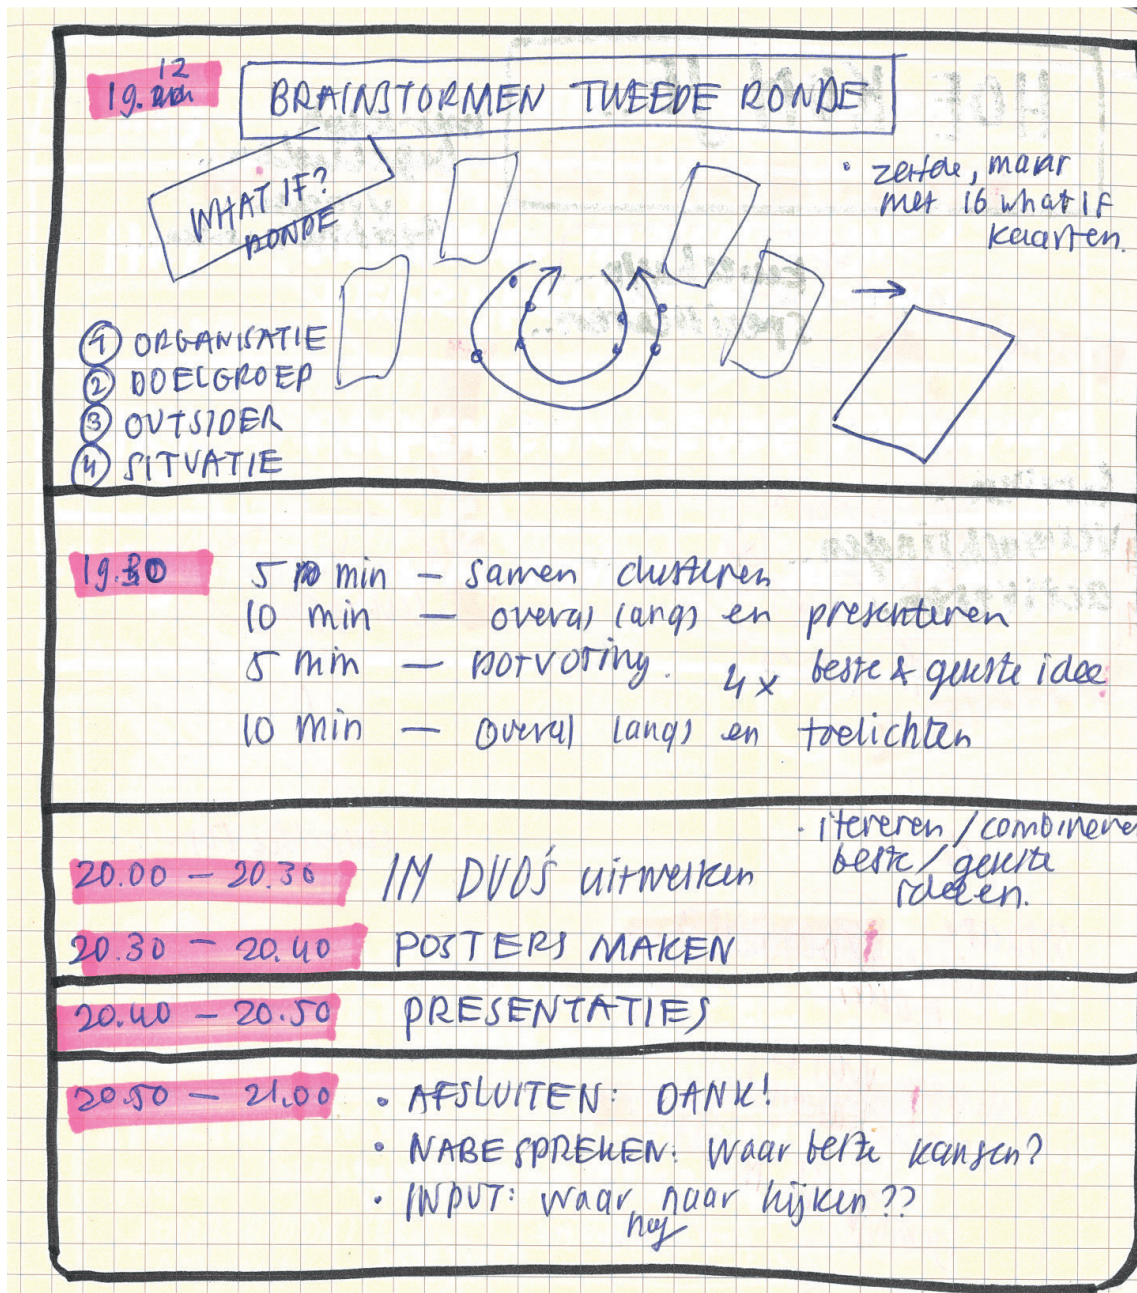 19.12
BRAINSTORMEN TWEEDE RONDE
WHAT IF?
RONDE
• zelfde, maar
met 16 what if
kaarten.
① ORGANISATIE
② DOELGROEP
③ OUTSIDER
④ SITUATIE
19.30
5 min – samen clusteren
10 min – overal langs en presenteren
5 min – dotvoting. 4x beste & gekste idee
10 min – overal langs en toelichten
• itereren / combineren
beste / gekste
ideeen.
20.00 – 20.30 IN DUO'S uitwerken
20.30 – 20.40 POSTERS MAKEN
20.40 – 20.50 PRESENTATIES
20.50 – 21.00 • AFSLUITEN: DANK!
• NABESPREKEN: Waar beste kansen?
• INPUT: waar nog naar kijken??